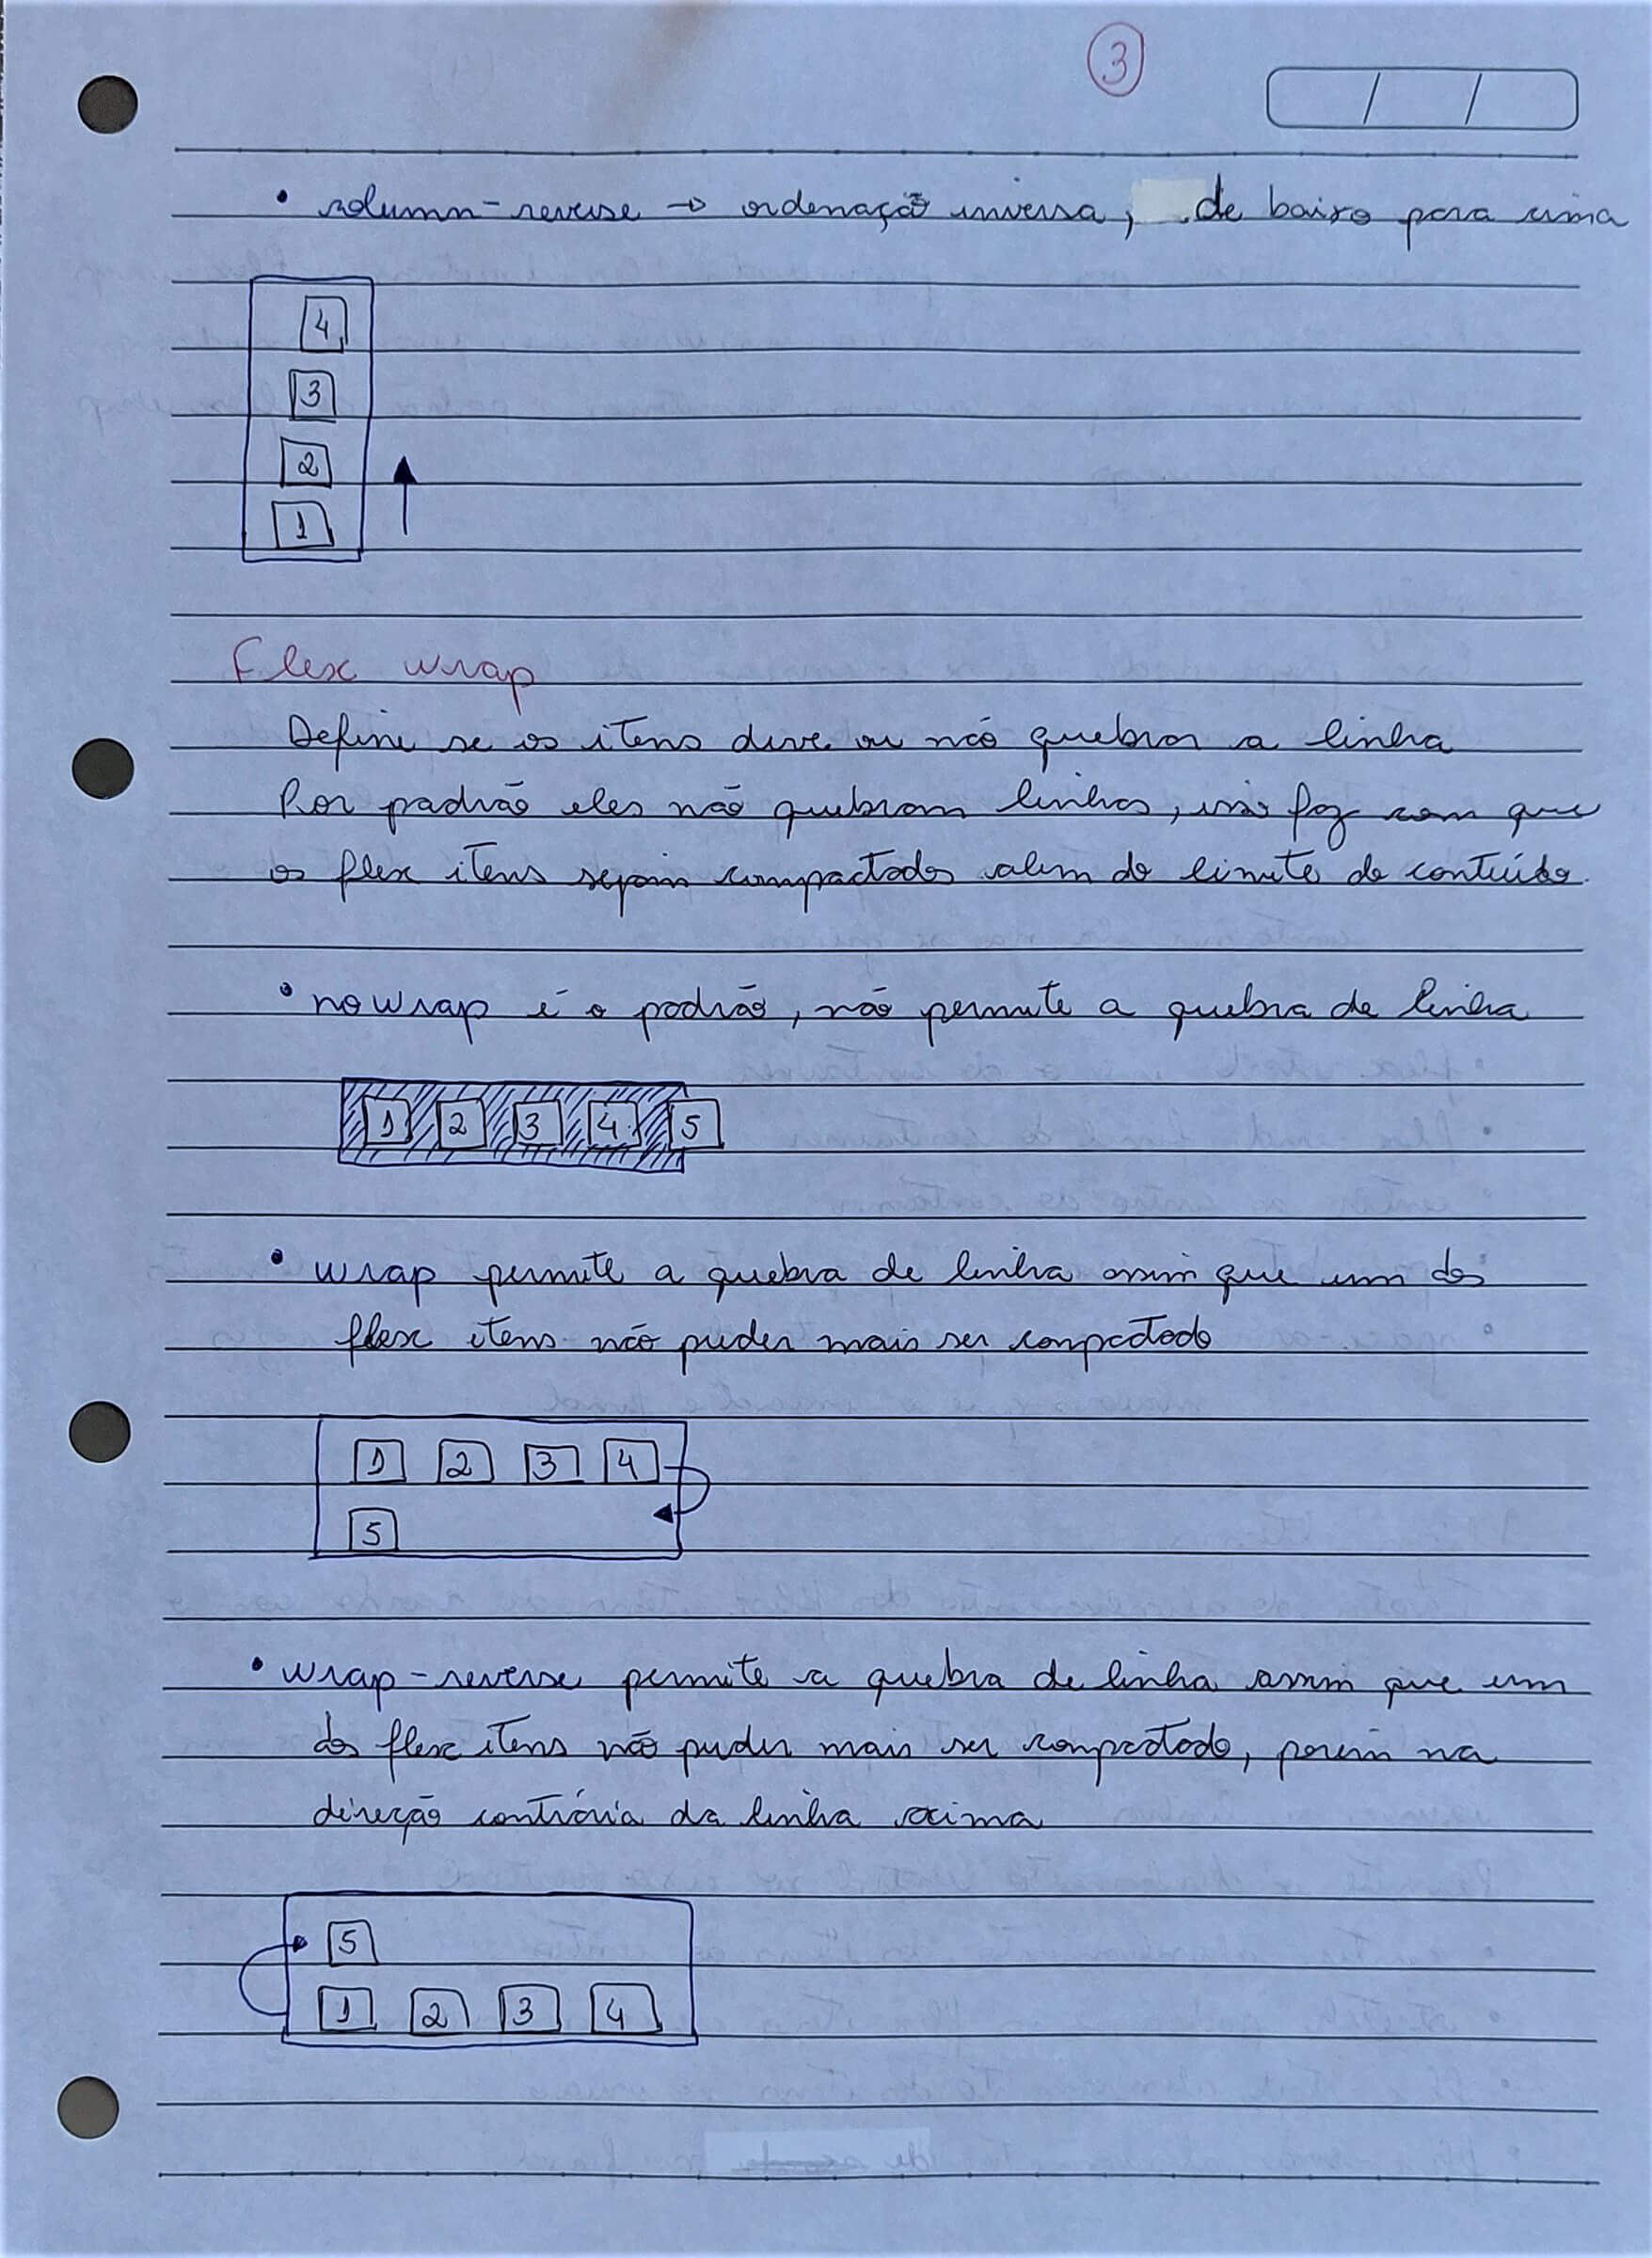 3
/ /
• column-reverse → ordenação inversa, de baixo para cima
4
3
2
1
Flex wrap
Define se os itens deve ou não quebrar a linha
Por padrão eles não quebram linhas, isso faz com que
os flex itens sejam compactados alem do limite do contuído.
• nowrap é o padrão, não permite a quebra de linha
1 2 3 4 5
• wrap permite a quebra de linha assim que um dos
flex itens não puder mais ser compactado
1 2 3 4
5
• wrap-reverse permite a quebra de linha assim que um
dos flex itens não puder mais ser compactado, porém na
direção contrária da linha acima
5
1 2 3 4